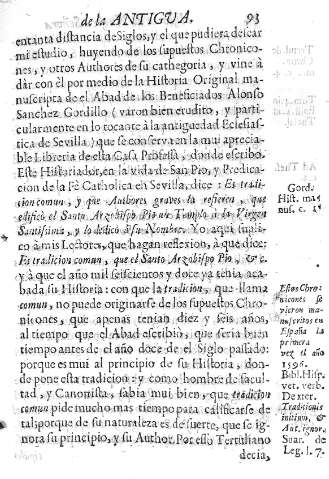 de la ANTIGUA. 93
entanta distancia de Siglos, y el que pudiera dexar
mi estudio, huyendo de los supuestos Chronico-
nes, y otros Authores de su cathegoria, y vine à
dàr con èl por medio de la Historia Original ma-
nuscripta de el Abad de los Beneficiados Alonso
Sanchez Gordillo (varon bien erudito, y parti-
cularmente en lo tocante à la antiguedad Eclesias-
tica de Sevilla) que se conserva en la mui aprecia-
ble Libreria de esta Casa Professa, donde escribo.
Este Historiador, en la vida de San Pio, y Predica-
cion de la Fè Catholica en Sevilla, dice: Es tradi-
cion comun, y que Authores graves la refieren, que
edificò el Santo Arzobispo Pio un Templo à la Virgen
Santissima, y lo dedicò à su Nombre. Yo aqui supli-
co à mis Lectores, que hagan reflexion, à que dice:
Es tradicion comun, que el Santo Arzobispo Pio, &c.
y à que el año mil seiscientos y doce ya tenia aca-
bada su Historia: con que la tradicion, que llama
comun, no puede originarse de los supuestos Chro-
nicones, que apenas tenian diez y seis años,
al tiempo que el Abad escribio, que seria buen
tiempo antes de el año doce de el Siglo passado:
porque es mui al principio de su Historia, don-
de pone esta tradicion: y como hombre de facul-
tad, y Canonista, sabia mui bien, que tradicion
comun pide mucho mas tiempo para calificarse de
tal; porque de su naturaleza es de suerte, que se ig-
nora su principio, y su Author. Por esso Tertuliano
decia,
Gord.
Hist. ma
nus. c.
Estos Chro-
nicones se
vieron ma-
nuscritos en
España la
primera
vez el año
1596.
Bibl. Hisp.
vet. verb.
Dexter.
Traditionis
initium, &
Aut. ignor.
Suar. de
Leg. l. 7.